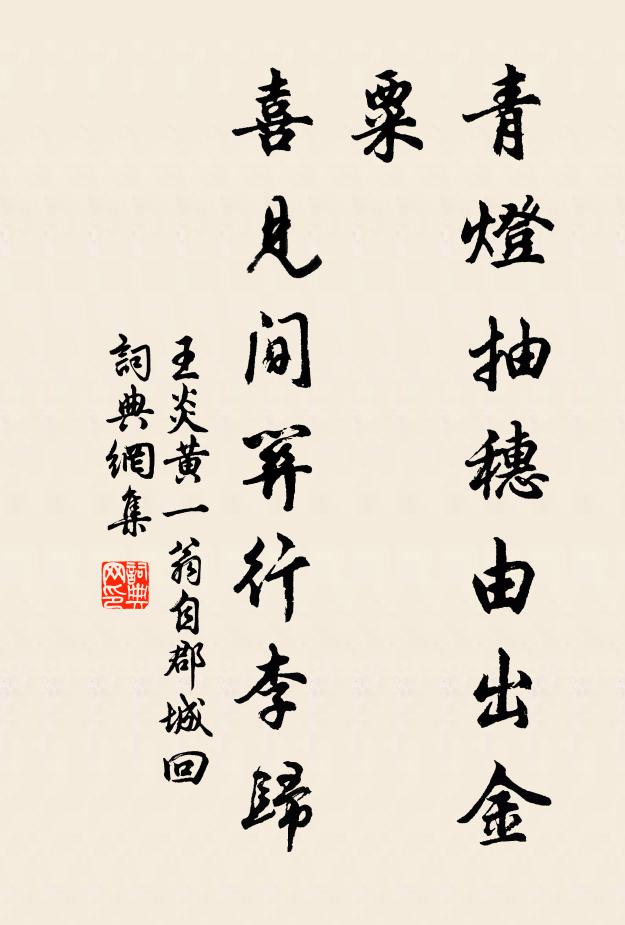 青燈抽穗由出金
粟
喜見閒羿行李歸
王炎黃一翁自郡城回
詞典網集
詞典网印